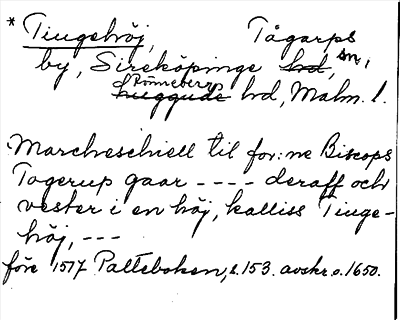 * Tingehöj, Tågarps
by, Sireköpinge hrd, sn,
Rönnebergs
Luggude hrd, Malm. l.
Marcheschiell til for:ne Biscops
Togerup gaar - - - - deraff och
vester i en höj, kalliss Tinge-
höj, - - -
före 1517 Palteboken, s. 153. avskr. o. 1650.